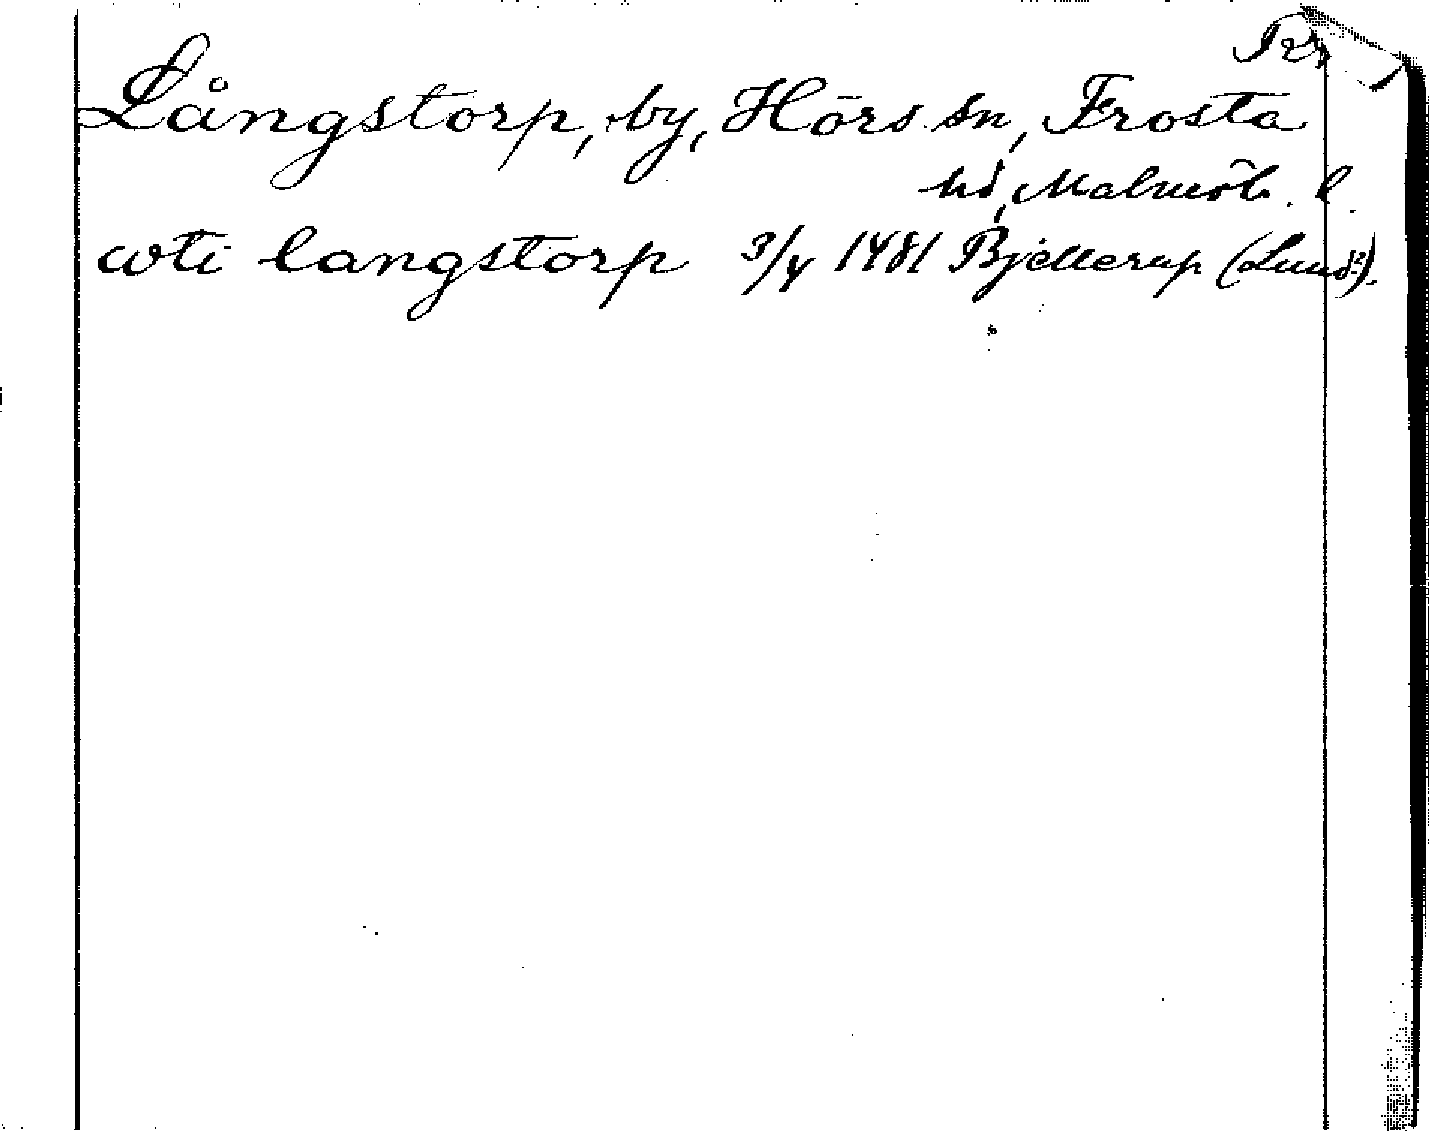 Långstorp, by, Hörs sn, Frosta
hd, Malmöh. l.
wti langstorp 3/4 1481 Bjellerup (Lund²).